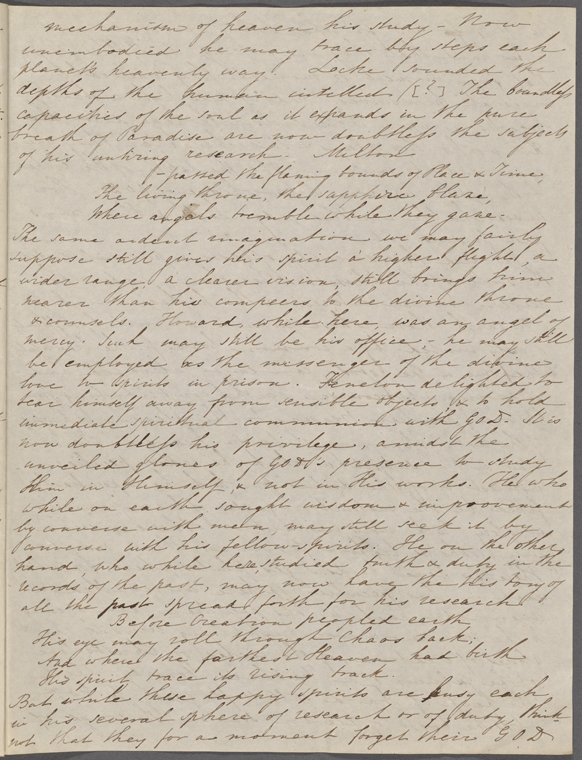 mechanism of heaven his study – Now
unembodied he may trace by steps each
planet's heavenly way. Locke sounded the
depths of the human intellect /[?] The boundless
capacities of the soul as it expands in the pure
breath of Paradise are now doubtless the subjects
of his untiring research. Milton
– passed the flaming bounds of Place & Time,
The living throne, the sapphire blaze,
Where angels tremble while they gaze –
The same ardent imagination we may fairly
suppose still gives his spirit a higher flight, a
wider range, a clearer vision, still brings him
nearer than his compeers to the divine throne
& counsels. Howard, while here, was an angel of
mercy. Such may still be his office – he may still
be employed as the messenger of the divine
love to spirits in prison. Fenelon delighted to
tear himself away from sensible objects, & to hold
immediate spiritual communion with GOD. It is
now doubtless his privilege, amidst the
unveiled glories of GOD's presence to study
Him in Himself, & not in His works. He who
while on earth sought wisdom & improvement
by converse with men, may still seek it by
converse with his fellow-spirits. He on the other
hand who while here studied truth & duty in the
records of the past, may now have the history of
all the past spread forth for his research
Before Creation peopled earth,
His eye may roll through Chaos back;
And where the farthest Heaven had birth
His spirit trace its rising track.
But while these happy spirits are busy each
in his several sphere of research or of duty, think
not that they for a moment forget their GOD